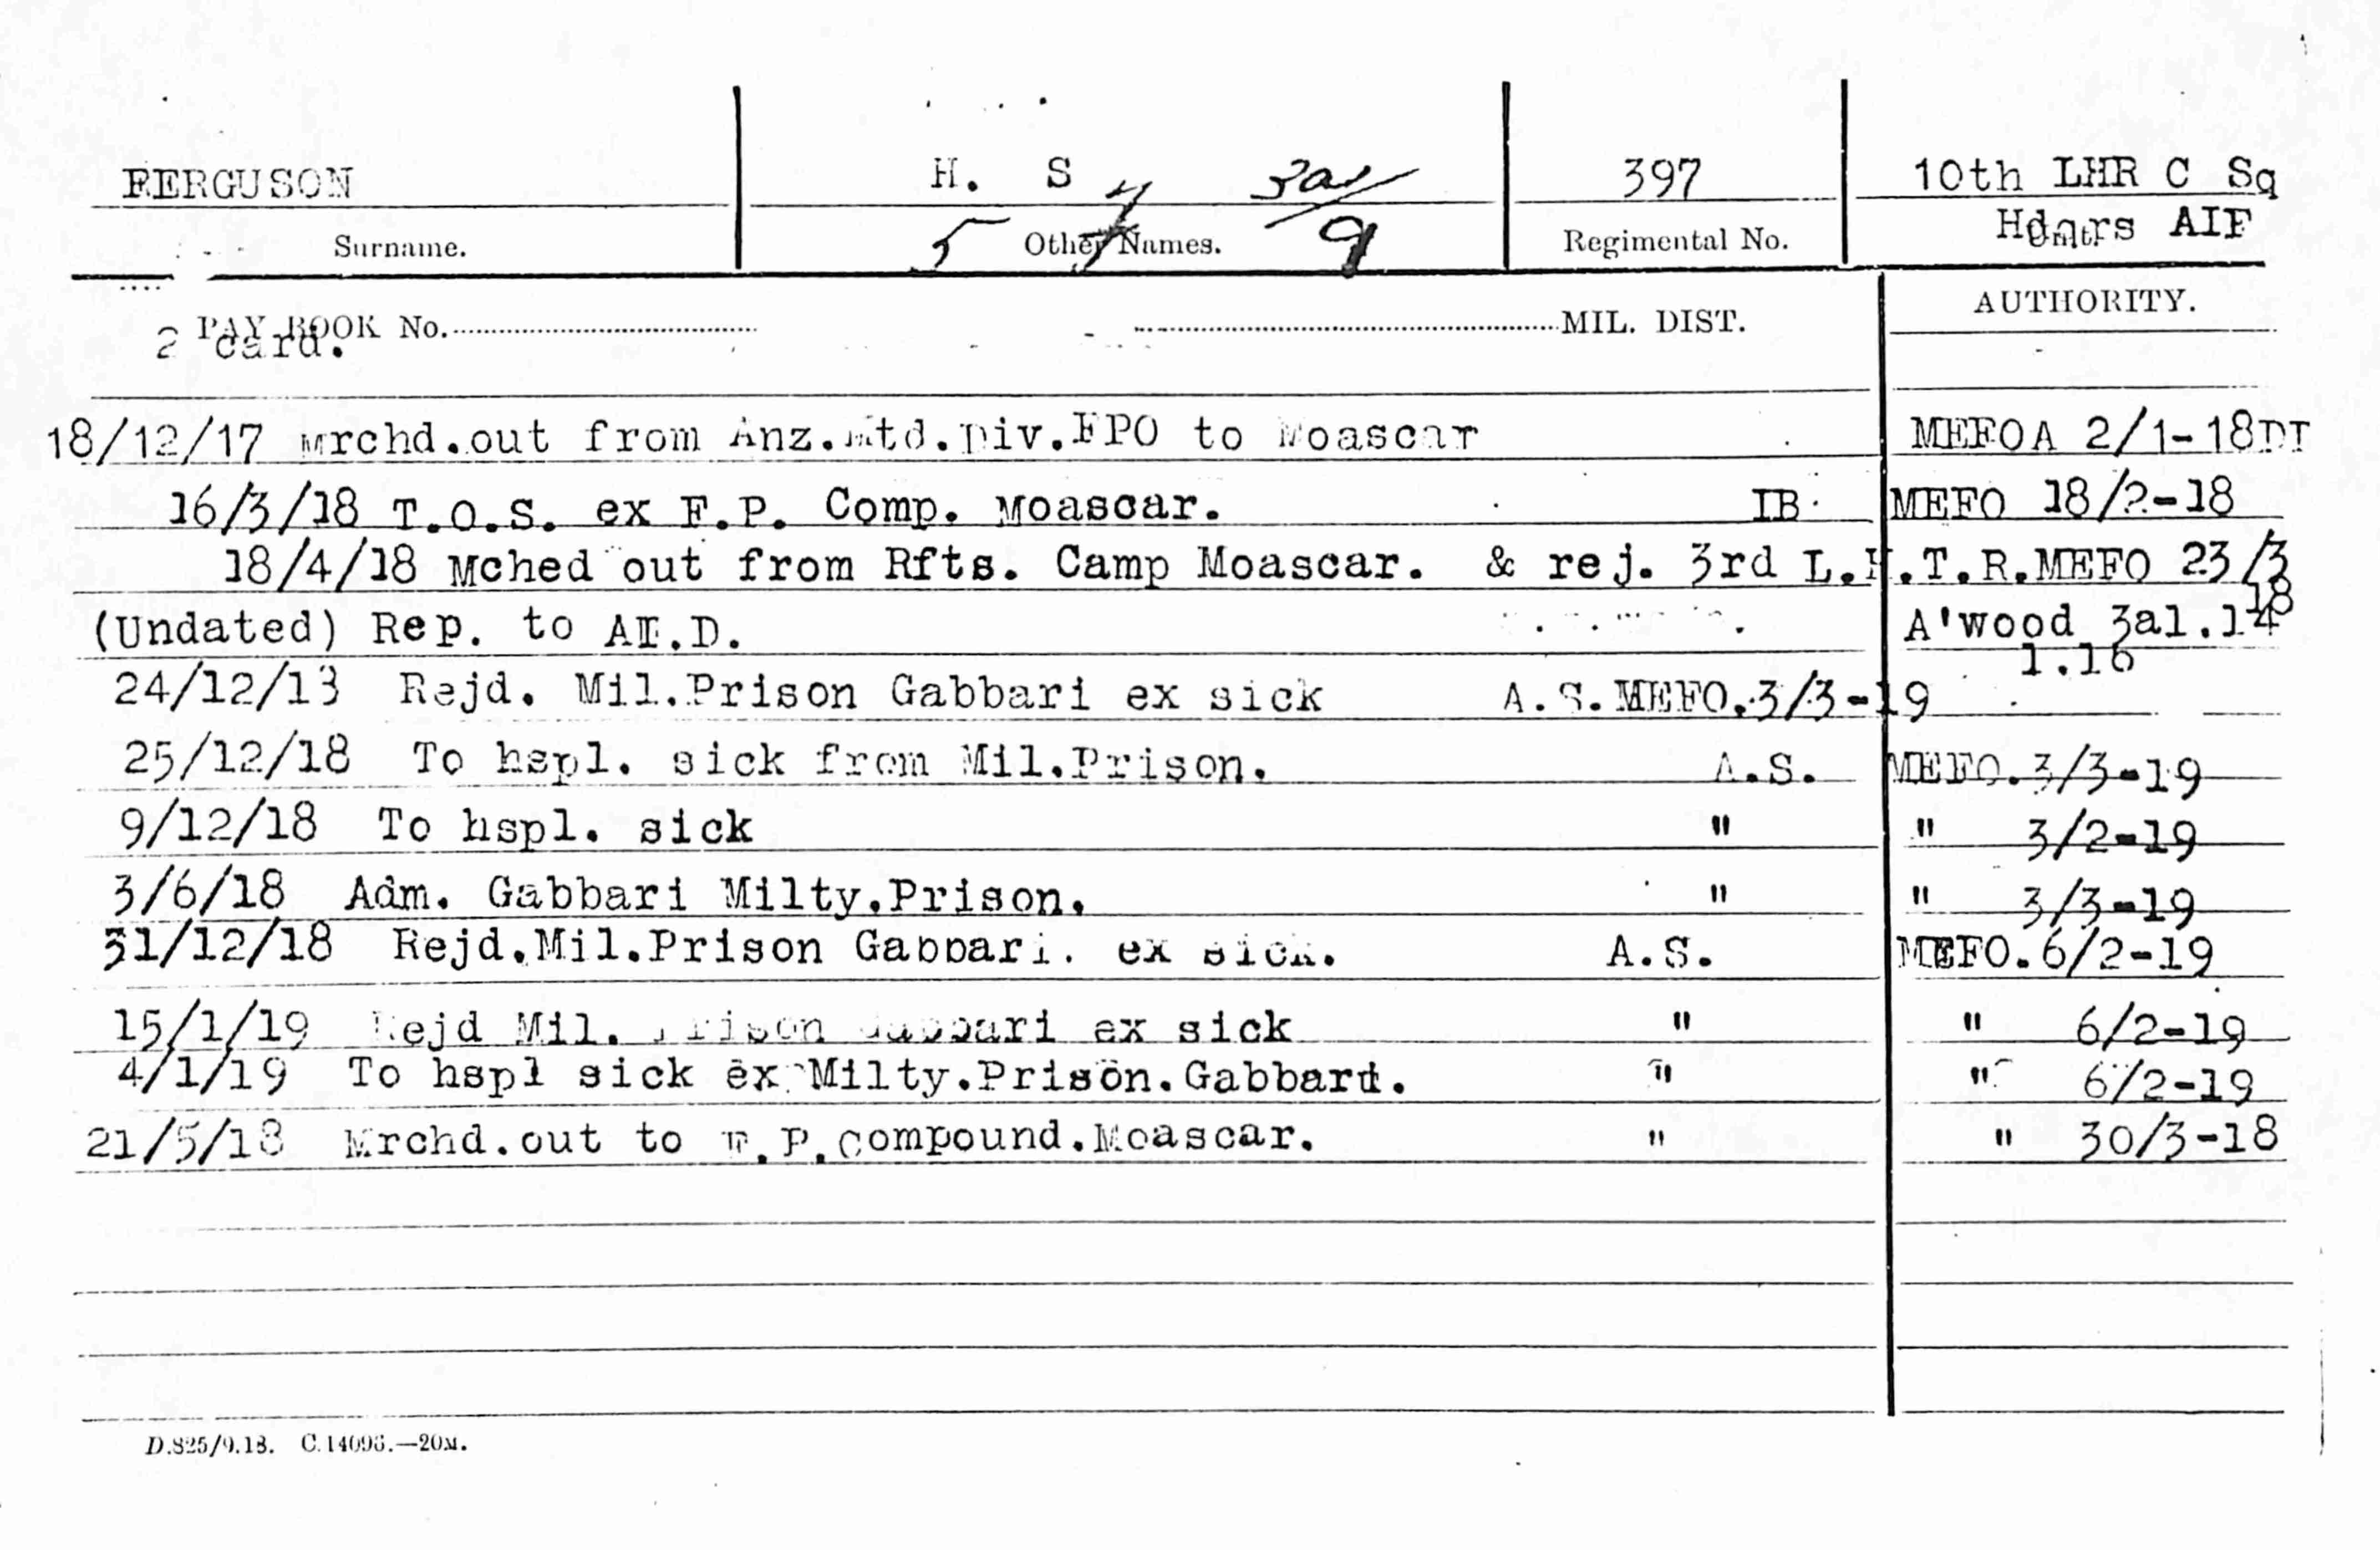 FERGUSON H. S 397 10th LHR C Sq
Hdqtrs AIF
Surname. Other Names. Regimental No.
5 9
AUTHORITY.
PAY BOOK No. MIL. DIST.
2 card.
18/12/17 Mrchd.out from Anz.Mtd.Div.FPO to Moascar MEFOA 2/1-18DT
16/3/18 T.O.S. ex F.P. Comp. Moascar. IB MEFO 18/2-18
18/4/18 Mched out from Rfts. Camp Moascar. & rej. 3rd L.H.T.R.MEFO 23/3
18
(Undated) Rep. to A.D. A'wood 3al.14
1.16
24/12/18 Rejd. Mil.Prison Gabbari ex sick A.S.MEFO.3/3-19
25/12/18 To hspl. sick from Mil.Prison. A.S. MEFO.3/3-19
9/12/18 To hspl. sick " " 3/2-19
3/6/18 Adm. Gabbari Milty.Prison. " " 3/3-19
31/12/18 Rejd.Mil.Prison Gabbari. ex sick. A.S. MEFO.6/2-19
15/1/19 Rejd Mil. Prison Gabbari ex sick " " 6/2-19
4/1/19 To hspl sick ex Milty.Prison.Gabbari. " " 6/2-19
21/5/18 Mrchd.out to F.P.Compound.Moascar. " " 30/3-18
D.825/9.18. C.14096.—20M.